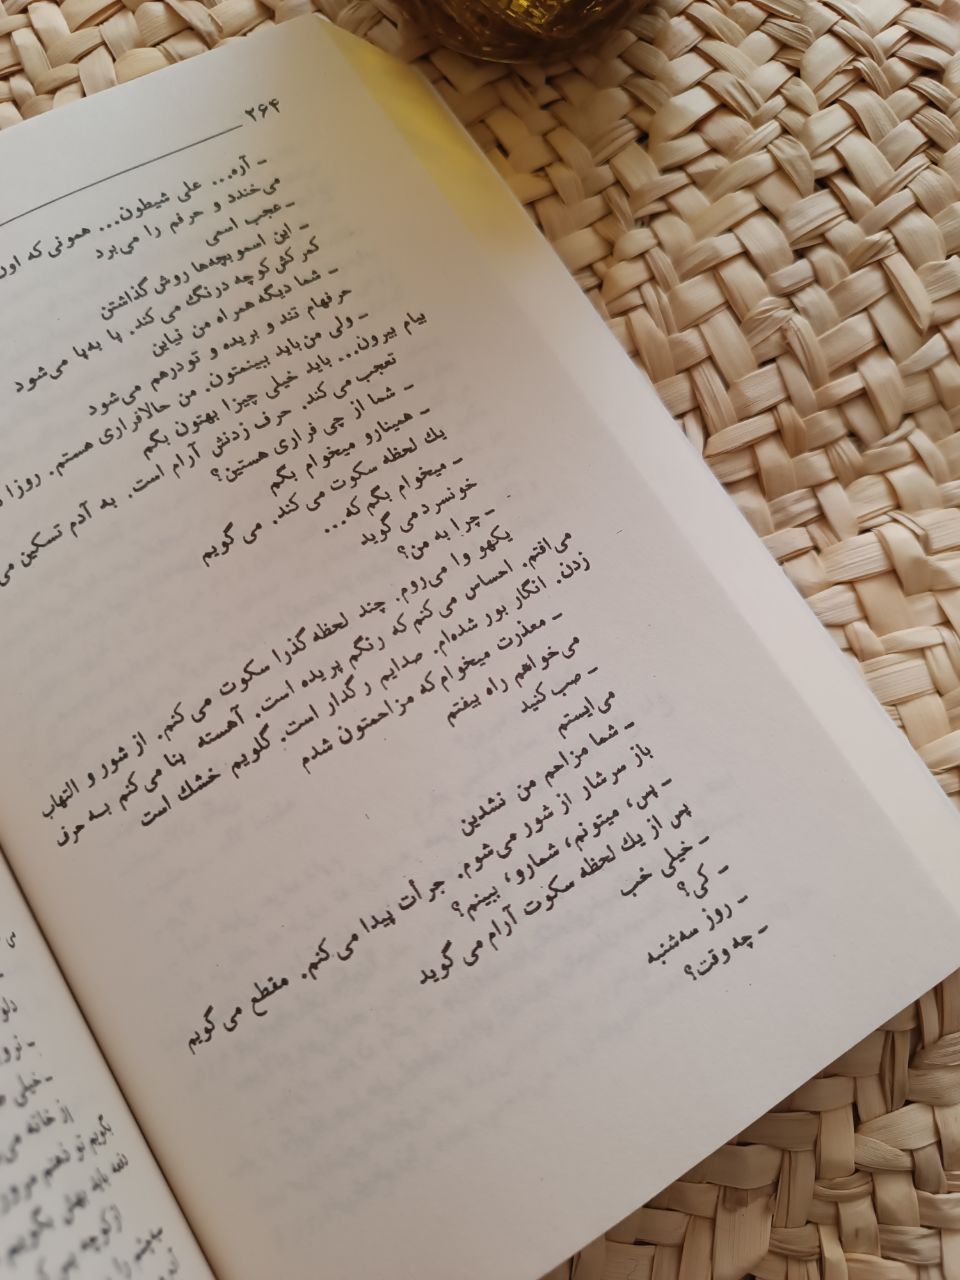 ۲۶۴
ـ آره... علی شیطون... همونی که اون
می‌خندد و حرفم را می‌برد
ـ عجب اسمی
ـ این اسمو بچه‌ها روش گذاشتن
کمرکش کوچه درنگ می‌کند. پا به‌پا می‌شود
ـ شما دیگه همراه من نیاین
حرفهام تند و بریده و تودرهم می‌شود
ـ ولی من‌باید ببینمتون. من حالافراری هستم. روزا
بیام بیرون... باید خیلی چیزا بهتون بگم
تعجب می‌کند. حرف زدنش آرام است. به آدم تسکین
ـ شما از چی فراری هستین؟
ـ همینارو میخوام بگم
یك لحظه سکوت می‌کند. می‌گویم
ـ میخوام بگم که...
خونسرد می‌گوید
ـ چرا به من؟
یکهو وا می‌روم. چند لحظه گذرا سکوت می‌کنم. از شور و التهاب
می‌افتم. احساس می‌کنم که رنگم پریده است. آهسته بنا می‌کنم به حرف
زدن. انگار بور شده‌ام. صدایم رگدار است. گلویم خشك است
ـ معذرت میخوام که مزاحمتون شدم
می‌خواهم راه بیفتم
ـ صب کنید
می‌ایستم
ـ شما مزاحم من نشدین
باز سرشار از شور می‌شوم. جرأت پیدا می‌کنم. مقطع می‌گویم
ـ پس، میتونم، شمارو، ببینم؟
پس از یك لحظه سکوت آرام می‌گوید
ـ خیلی خب
ـ کی؟
ـ روز سه‌شنبه
ـ چه وقت؟
ـ خیلی
از خانه
بگویم تو نعنم